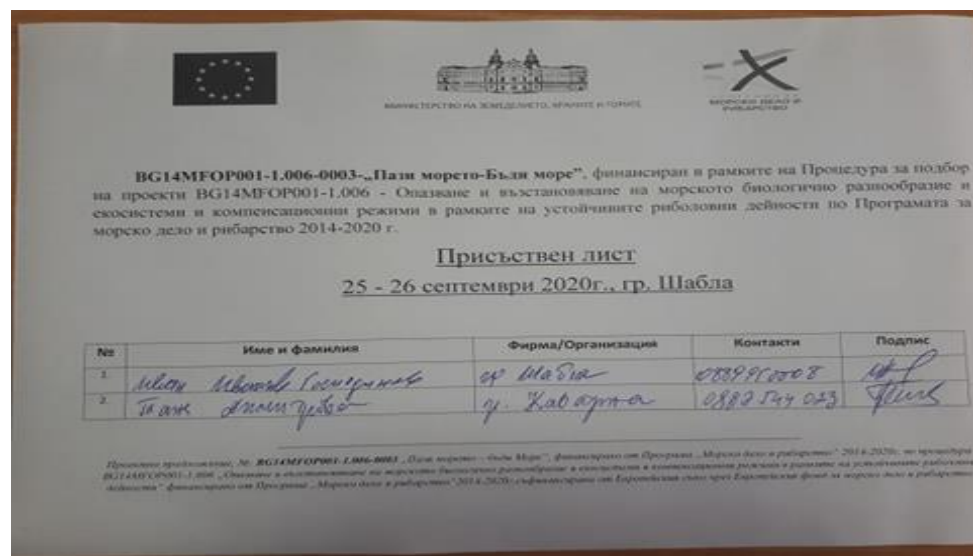 МИНИСТЕРСТВО НА ЗЕМЕДЕЛИЕТО, ХРАНИТЕ И ГОРИТЕ
МОРСКО ДЕЛО И
РИБАРСТВО
BG14MFOP001-1.006-0003-„Пази морето-Бъди море”, финансиран в рамките на Процедура за подбор
на проекти BG14MFOP001-1.006 - Опазване и възстановяване на морското биологично разнообразие и
екосистеми и компенсационни режими в рамките на устойчивите риболовни дейности по Програмата за
морско дело и рибарство 2014-2020 г.
Присъствен лист
25 - 26 септември 2020г., гр. Шабла
№ Име и фамилия Фирма/Организация Контакти Подпис
1. гр Шабла
2. гр. Каварна
Проектно предложение, №: BG14MFOP001-1.006-0003 „Пази морето – бъди Море”, финансирано от Програма „Морско дело и рибарство” 2014-2020г., по процедура
BG14MFOP001-1.006 „Опазване и възстановяване на морското биологично разнообразие и екосистеми и компенсационни режими в рамките на устойчивите риболовни
дейности” финансирано от Програма „Морско дело и рибарство” 2014-2020г. съфинансирана от Европейския съюз чрез Европейския фонд за морско дело и рибарство